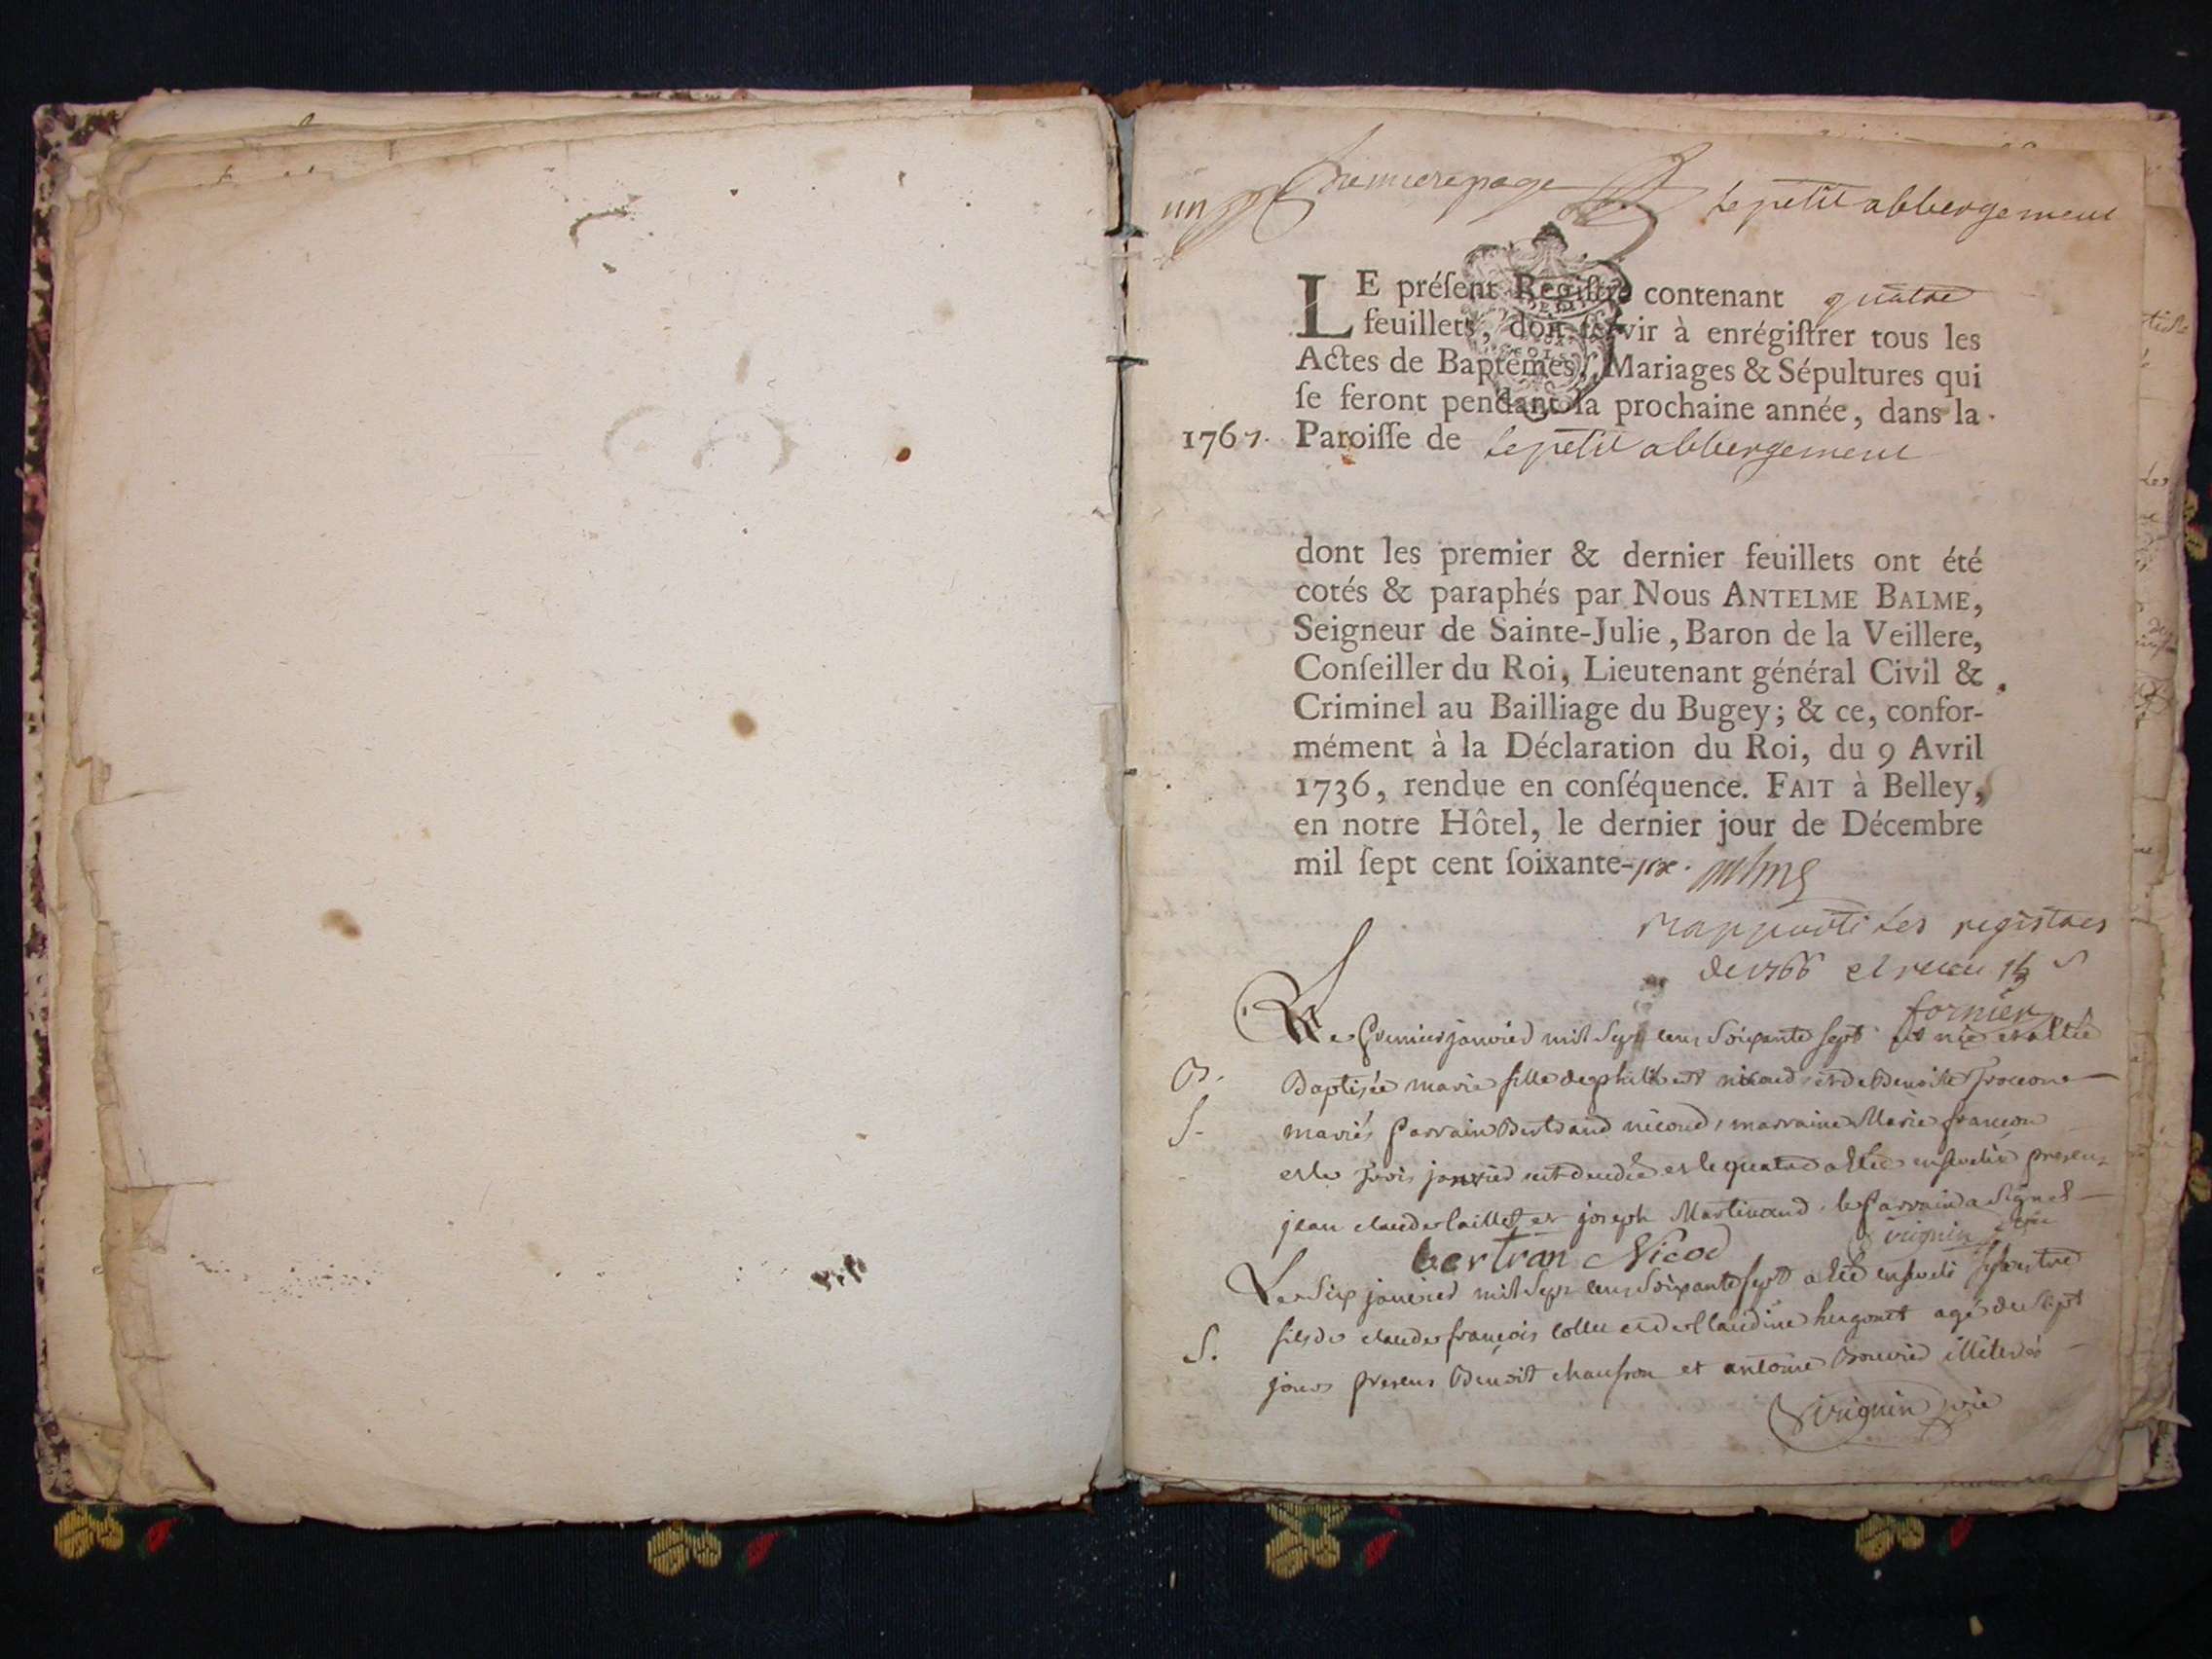 un premiere page Le petit abbergement
LE préſent Regiſtre contenant quatre
feuillets, doit ſervir à enrégiſtrer tous les
Actes de Baptêmes, Mariages & Sépultures qui
ſe feront pendant la prochaine année, dans la
1767. Paroiſſe de Le petit abbergement
dont les premier & dernier feuillets ont été
cotés & paraphés par Nous ANTELME BALME,
Seigneur de Sainte-Julie, Baron de la Veillere,
Conſeiller du Roi, Lieutenant général Civil &
Criminel au Bailliage du Bugey; & ce, confor-
mément à la Déclaration du Roi, du 9 Avril
1736, rendue en conſéquence. FAIT à Belley,
en notre Hôtel, le dernier jour de Décembre
mil ſept cent ſoixante-six. Balme
rapporté les registres
de 1766 et receu
fornier
Le Premier janvier mil Sept cens Soixante sept est née et a été
B. Baptisée marie fille de philibert nicoud et de Benoite
S. mariés Parrain Bertrand nicoud, marraine Marie françon
et le trois janvier est decedée et le quatre a été ensevelie presens
jean claude Caillet et joseph Martinand. le Parrain a Signé
bertran Nicod Vuignin
Le Six janvier mil Sept cens Soixante sept a été enseveli Sylvestre
S. fils de claude françois collet et de Claudine hugonet agé de Sept
jours presens Benoit chauson et antoine Bouvier illiterés
Vuignin